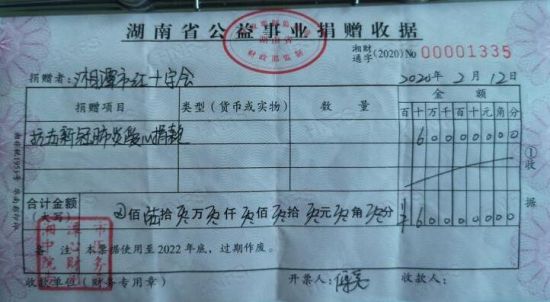 湖南省公益事业捐赠收据
财政部监制
湘财通字(2020)No 00001335
捐赠者:湘潭市红十字会 2020年2月12日
捐赠项目 类型(货币或实物) 数量 金额
百十万千百十元角分
抗击新冠肺炎爱心捐款 6000000
合计金额(大写) 佰陆拾零万零仟零佰零拾零元零角零分 ¥6000000
备注:本票据使用至2022年底,过期作废。
收款单位(财务专用章) 开票人: 收款人:
①收据